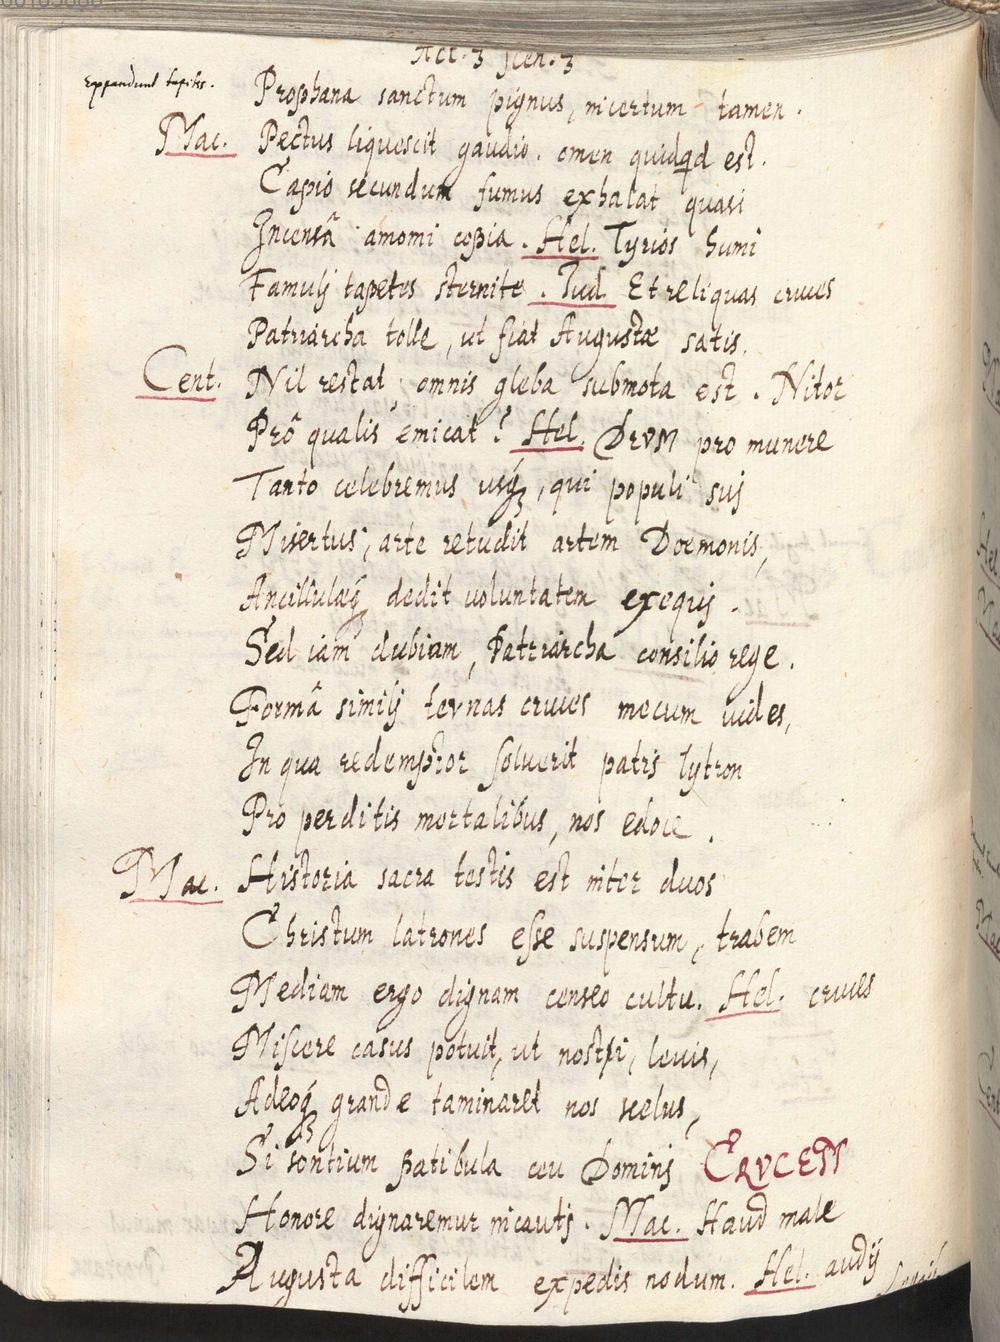 Act. 3 Scen. 3
Expandunt tapites.
Prophana sanctum pignus, incertum tamen.
Mac. Pectus liquescit gaudio. omen quidqd est.
Capio secundum fumus exhalat quasi
Incensâ amomi copia. Hel. Tyrios humi
Famulj tapetes sternite. Jud. Et reliquas cruces
Patriarcha tolle, ut fiat Augustæ satis.
Cent. Nil restat, omnis gleba submota est. Nitor
Prô qualis emicat? Hel. DEVM pro munere
Tanto celebremus usq3, qui populi suj
Misertus, arte retudit artem Dœmonis,
Ancillulæq3 dedit voluntatem exequj.
Sed iam dubiam, Patriarcha consilio rege.
Formâ similj ternas cruces mecum uides,
In qua redemptor soluerit patris lytron
Pro perditis mortalibus, nos edoce.
Mac. Historia sacra testis est inter duos
Christum latrones esse suspensum, trabem
Mediam ergo dignam censeo cultu. Hel. cruces
Miscere casus potuit, ut nostri, leuis,
Adeoq3 grande taminaret nos scelus,
Si sontium patibula ceu Dominj CRVCEM
Honore dignaremur incautj. Mac. Haud male
Augusta difficilem expedis nodum. Hel. audij